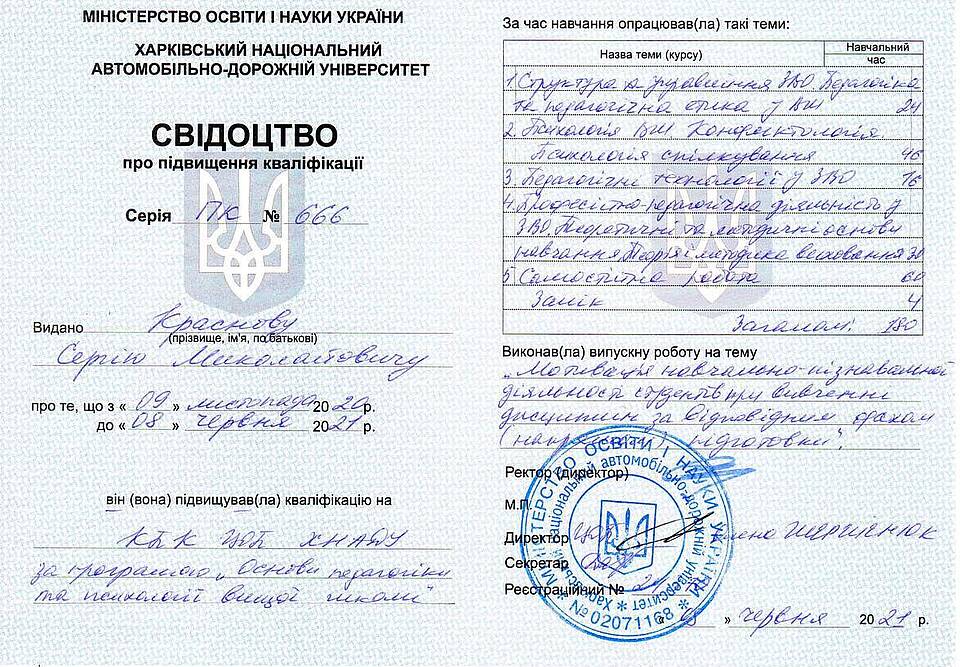 МІНІСТЕРСТВО ОСВІТИ І НАУКИ УКРАЇНИ
ХАРКІВСЬКИЙ НАЦІОНАЛЬНИЙ
АВТОМОБІЛЬНО-ДОРОЖНІЙ УНІВЕРСИТЕТ
СВІДОЦТВО
про підвищення кваліфікації
Серія ПК № 666
Видано Краснову
(прізвище, ім'я, по батькові)
Сергію Миколайовичу
про те, що з « 09 » листопада 2020р.
до « 08 » червня 2021р.
він (вона) підвищував(ла) кваліфікацію на
КПК ЦОП ХНАДУ
за програмою „Основи педагогіки
та психології вищої школи"
За час навчання опрацював(ла) такі теми:
Назва теми (курсу)
Навчальний
час
1. Структура та управління ЗВО. Педагогіка
та педагогічна етика у ВШ 24
2. Психологія ВШ. Конфліктологія.
Психологія спілкування 46
3. Педагогічні технології у ЗВО 16
4. Професійно-педагогічна діяльність у
ЗВО. Теоретичні та методичні основи
навчання. Теорія і методика виховання 30
5. Самостійна робота 60
Залік 4
Загалом: 180
Виконав(ла) випускну роботу на тему
„Мотивація навчально-пізнавальної
діяльності студентів при вивченні
дисциплін за відповідним фахом
(напрямом) підготовки".
Ректор (директор)
М.П.
Директор ЦОП Олено ШЕРШЕНЮК
Секретар
Реєстраційний №
» червня 2021 р.
МІНІСТЕРСТВО ОСВІТИ І НАУКИ УКРАЇНИ
Харківський національний автомобільно-дорожній університет
№ 02071168